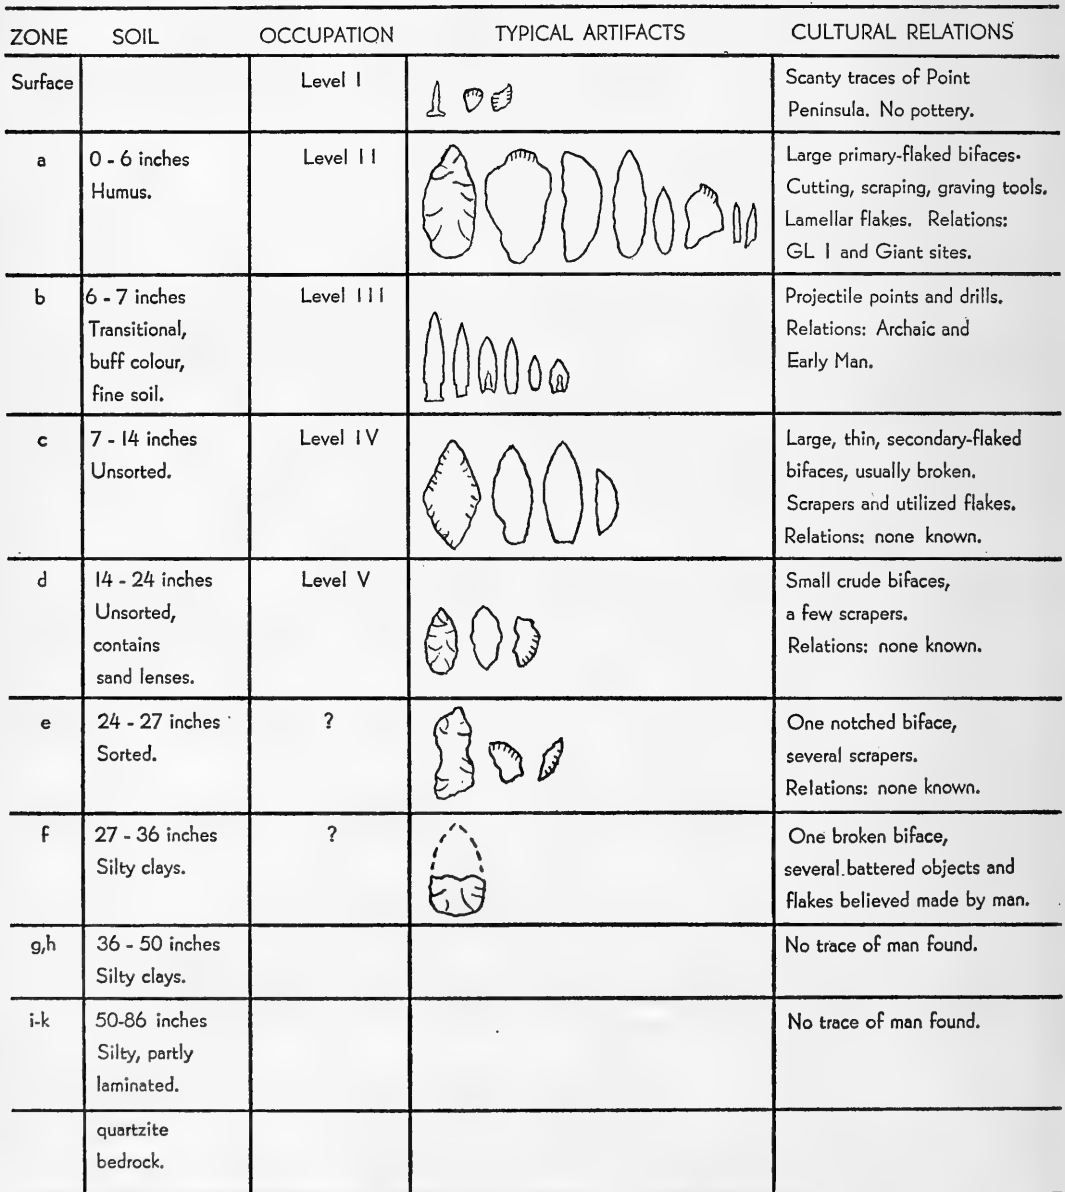 ZONE SOIL OCCUPATION TYPICAL ARTIFACTS CULTURAL RELATIONS
Surface
Level I
Scanty traces of Point
Peninsula. No pottery.
a
0 - 6 inches
Humus.
Level II
Large primary-flaked bifaces.
Cutting, scraping, graving tools.
Lamellar flakes. Relations:
GL I and Giant sites.
b
6 - 7 inches
Transitional,
buff colour,
fine soil.
Level III
Projectile points and drills.
Relations: Archaic and
Early Man.
c
7 - 14 inches
Unsorted.
Level IV
Large, thin, secondary-flaked
bifaces, usually broken.
Scrapers and utilized flakes.
Relations: none known.
d
14 - 24 inches
Unsorted,
contains
sand lenses.
Level V
Small crude bifaces,
a few scrapers.
Relations: none known.
e
24 - 27 inches
Sorted.
?
One notched biface,
several scrapers.
Relations: none known.
f
27 - 36 inches
Silty clays.
?
One broken biface,
several battered objects and
flakes believed made by man.
g,h
36 - 50 inches
Silty clays.
No trace of man found.
i-k
50-86 inches
Silty, partly
laminated.
No trace of man found.
quartzite
bedrock.